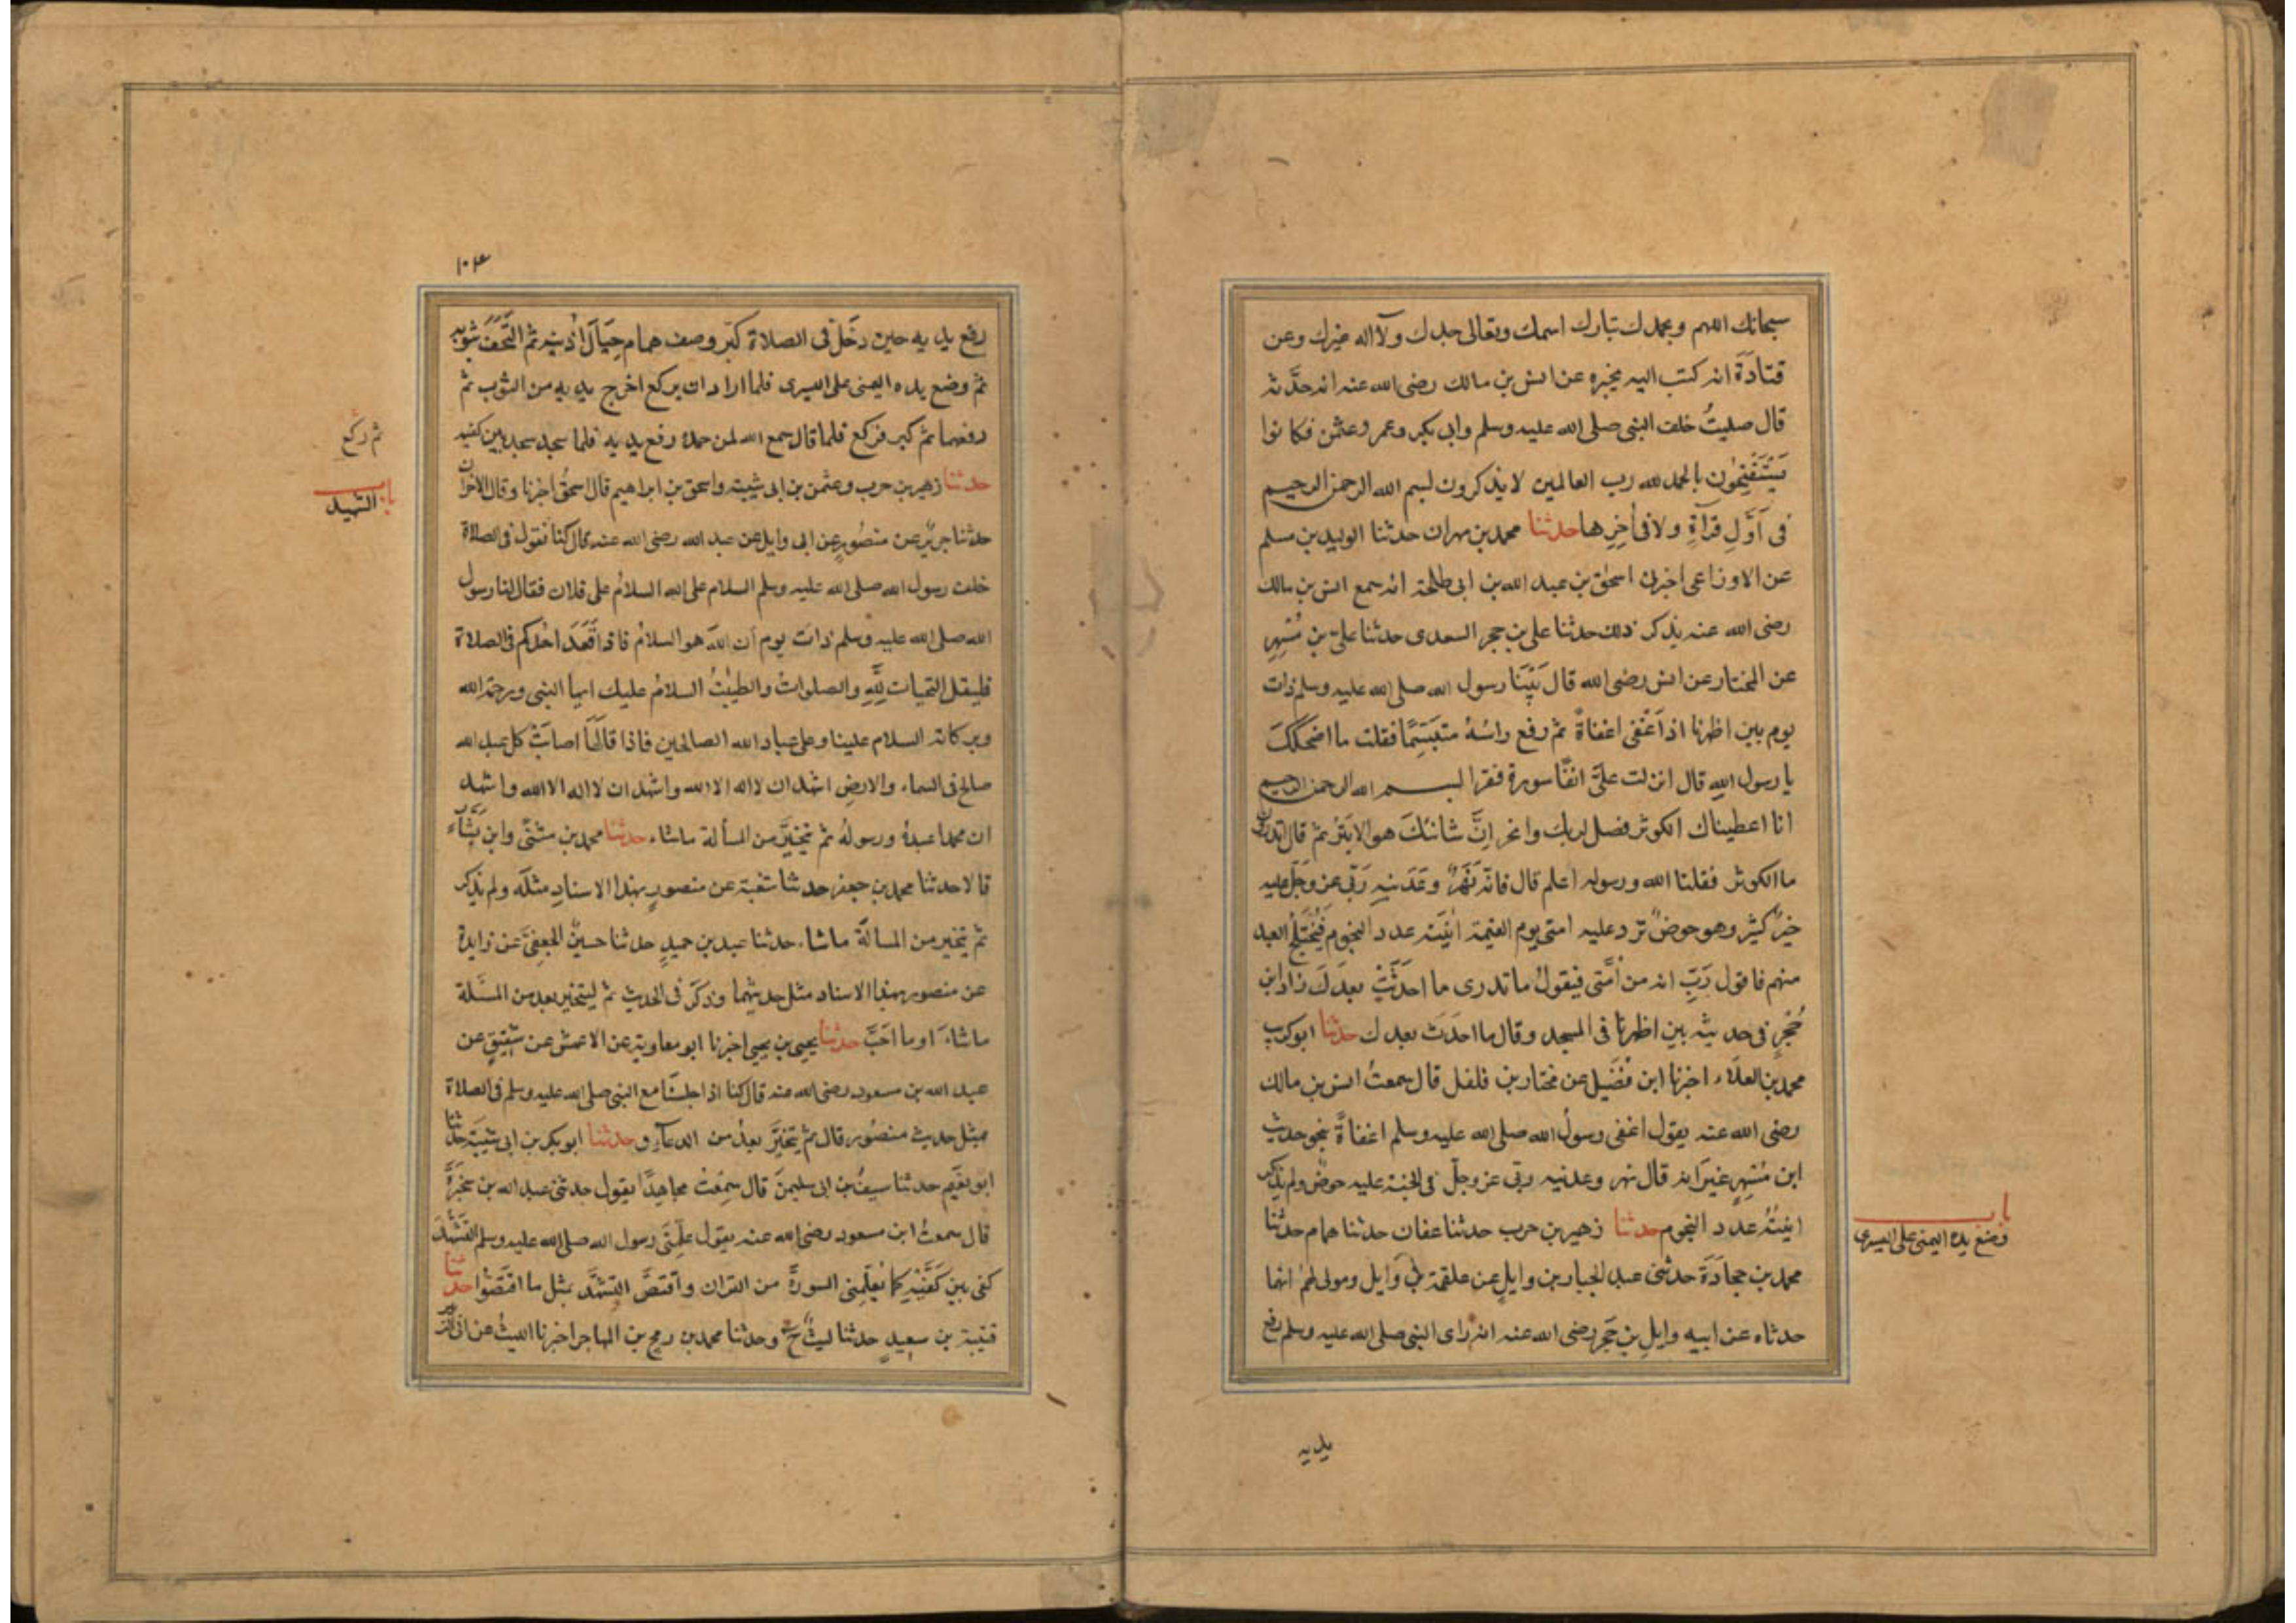 سبحانك اللهم وبحمدك تبارك اسمك وتعالى جدك ولا اله غيرك وعن
قتادَةَ انه كتب اليه يخبره عن انس بن مالك رضى الله عنه انه حدَّثه
قال صليتُ خلف النبى صلى الله عليه وسلم وابى بكر وعمر وعثمن فكانوا
يَسْتَفْتِحُون بالحمد لله رب العالمين لا يذكرون لبسم الله الرحمن الرحيم
فى اَوَّلِ قرآةٍ ولا فى اٰخِرِها حدثنا محمد بن مهران حدثنا الوليد بن مسلم
عن الاوزاعى اخبرنى اسحٰق بن عبد الله بن ابى طلحة انه سمع انس بن مالك
رضى الله عنه يذكر ذلك حدثنا على بن حجر السعدى حدثنا علىّ بن مُسْهِرٍ
عن المختار عن انس رضى الله قال بَيْنَا رسول الله صلى الله عليه وسلم ذات
يوم بين اظهرنا اذ اَغْفى اغفاةً ثم رفع راسَهُ متبَسِّمًا فقلت ما اضحككَ
يا رسول اللهِ قال انزلت علىَّ انفًا سورة فقرا بسم الله الرحمن الرحيم
انا اعطيناك الكوثر فصل لربك وانحر اِنَّ شانئكَ هو الابتَرُ ثم قال تدرون
ما الكوثر فقلنا الله ورسوله اعلم قال فانّه نَهَرٌ وعَدَنيه رَبِّى عز وجَلّ عليه
خيرٌ كثيرٌ وهو حوضٌ ترد عليه امتى يوم القيمة اٰنيَته عدد النجوم فيُخْتَلَجُ العبد
منهم فاقول رَبِّ انه من اُمَّتى فيقولُ ما تدرى ما احَدَثَتْ بعدَكَ زاد ابن
حُجْرٍ فى حديثه بين اظهرنا فى المسجد وقال ما احدَثَ بعدك حدثنا ابو كريب
محمد بن العلآء اخبرنا ابن فُضَيل عن مختار بن فلفل قال سمعتُ انس بن مالك
رضى الله عنه يقول اغفى رسولُ الله صلى الله عليه وسلم اغفاةً بنحو حديث
ابن مُسْهِرٍ غيرَ انه قال نهر وعدنيه ربى عز وجلّ فى الجنة عليه حوضٌ ولم يذكر
اٰنيتُه عدد النجوم حدثنا زهير بن حرب حدثنا عفان حدثنا همام حدثنا
محمد بن جحادَةَ حدثنى عبد الجبار بن وايلٍ عن علقمة بن وايل ومولى لهمُ انهما
حدثاه عن ابيه وايلِ بن حَجر رضى الله عنه انه راى النبى صلى الله عليه وسلم رفع
باب
وضع يده اليمنى على اليسرى
يديه
١٠٣
رفع يديه حين دخَلَ فى الصلاة كَبّر وصف همام حِيَالَ اُذنيه ثم التَحَفَ بثوبه
ثم وضع يده اليمنى على اليسرى فلما اراد ان يركع اخرج يديه من الثوب ثم
رفعهما ثم كبر فركع فلما قال سمع الله لمن حمده رفع يديه فلما سجد سجد بين كفيه
حدثنا زهير بن حرب وعثمن بن ابى شيبة واسحق بن ابراهيم قال اسحٰقُ اخبرنا وقال الاخران
حدثنا جريرٌ عن منصُورٍ عن ابى وايل عن عبد الله رضى الله عنه قال كنا نقول فى الصلاة
خلف رسول الله صلى الله عليه وسلم السلام على الله السلامُ على فلان فقال لنا رسول
الله صلى الله عليه وسلم ذات يوم ان اللهَ هو السلامُ فاذا قَعَدَ احدكم فى الصلاة
فليقل التحيات لِلّهِ والصلواتُ والطيبٰتُ السلامُ عليك ايها النبى ورحمة الله
وبركاته السلام علينا وعلى عباد الله الصالحين فاذا قالَهَا اصابَتْ كل عبد الله
صالح فى السماء والارضِ اشهد ان لا اله الا الله واشهد ان لا اله الا الله واشهد
ان محمدا عبدهُ ورسولهُ ثم يتخيَّر من المسألة ماشاء حدثنا محمد بن مثنّى وابن بَشّار
قالا حدثنا محمد بن جعفر حدثنا شعبة عن منصورٍ بهذا الاسنادِ مثلَه ولم يذكر
ثم يتخير من المسالة ماشاء حدثنا عبد بن حميدٍ حدثنا حسينٌ الجعفىَّ عن زايدة
عن منصور بهذا الاسناد مثل حديثهما وذكرَ فى الحديث ثم ليتخير بعد من المسئلة
ماشاءَ او ما احَبَّ حدثنا يحيى بن يحيى اخبرنا ابو معاوية عن الاعمش عن شقيقٍ عن
عبد الله بن مسعود رضى الله عنه قال كنا اذا جلسْنا مع النبى صلى الله عليه وسلم فى الصلاة
بمثل حديث منصُور قال ثم يتخيَّر بعدُ من الدعآءِ وحدثنا ابو بكر بن ابى شيبَة حدثنا
ابو نعَيم حدثنا سيفُ بن ابى سليمنَ قال سمِعْتُ مجاهدًا يقول حدثنى عبد الله بن سَخبَرَةَ
قال سمعتُ ابن مسعود رضى الله عنه يقول علّمَنى رسول الله صلى الله عليه وسلم التَشَهُّدَ
كفى بين كَفَّيْهِ كما يُعلّمنى السورةَ من القران واقتصَّ التشهُّدَ بمثل ما اقتَصُّوا حدثنا
قتيبة بن سعيدٍ حدثنا ليثٌ ح وحدثنا محمد بن رمح بن المهاجر اخبرنا الليثُ عن ابى الزبير
ثم ركع
باب
التشهد